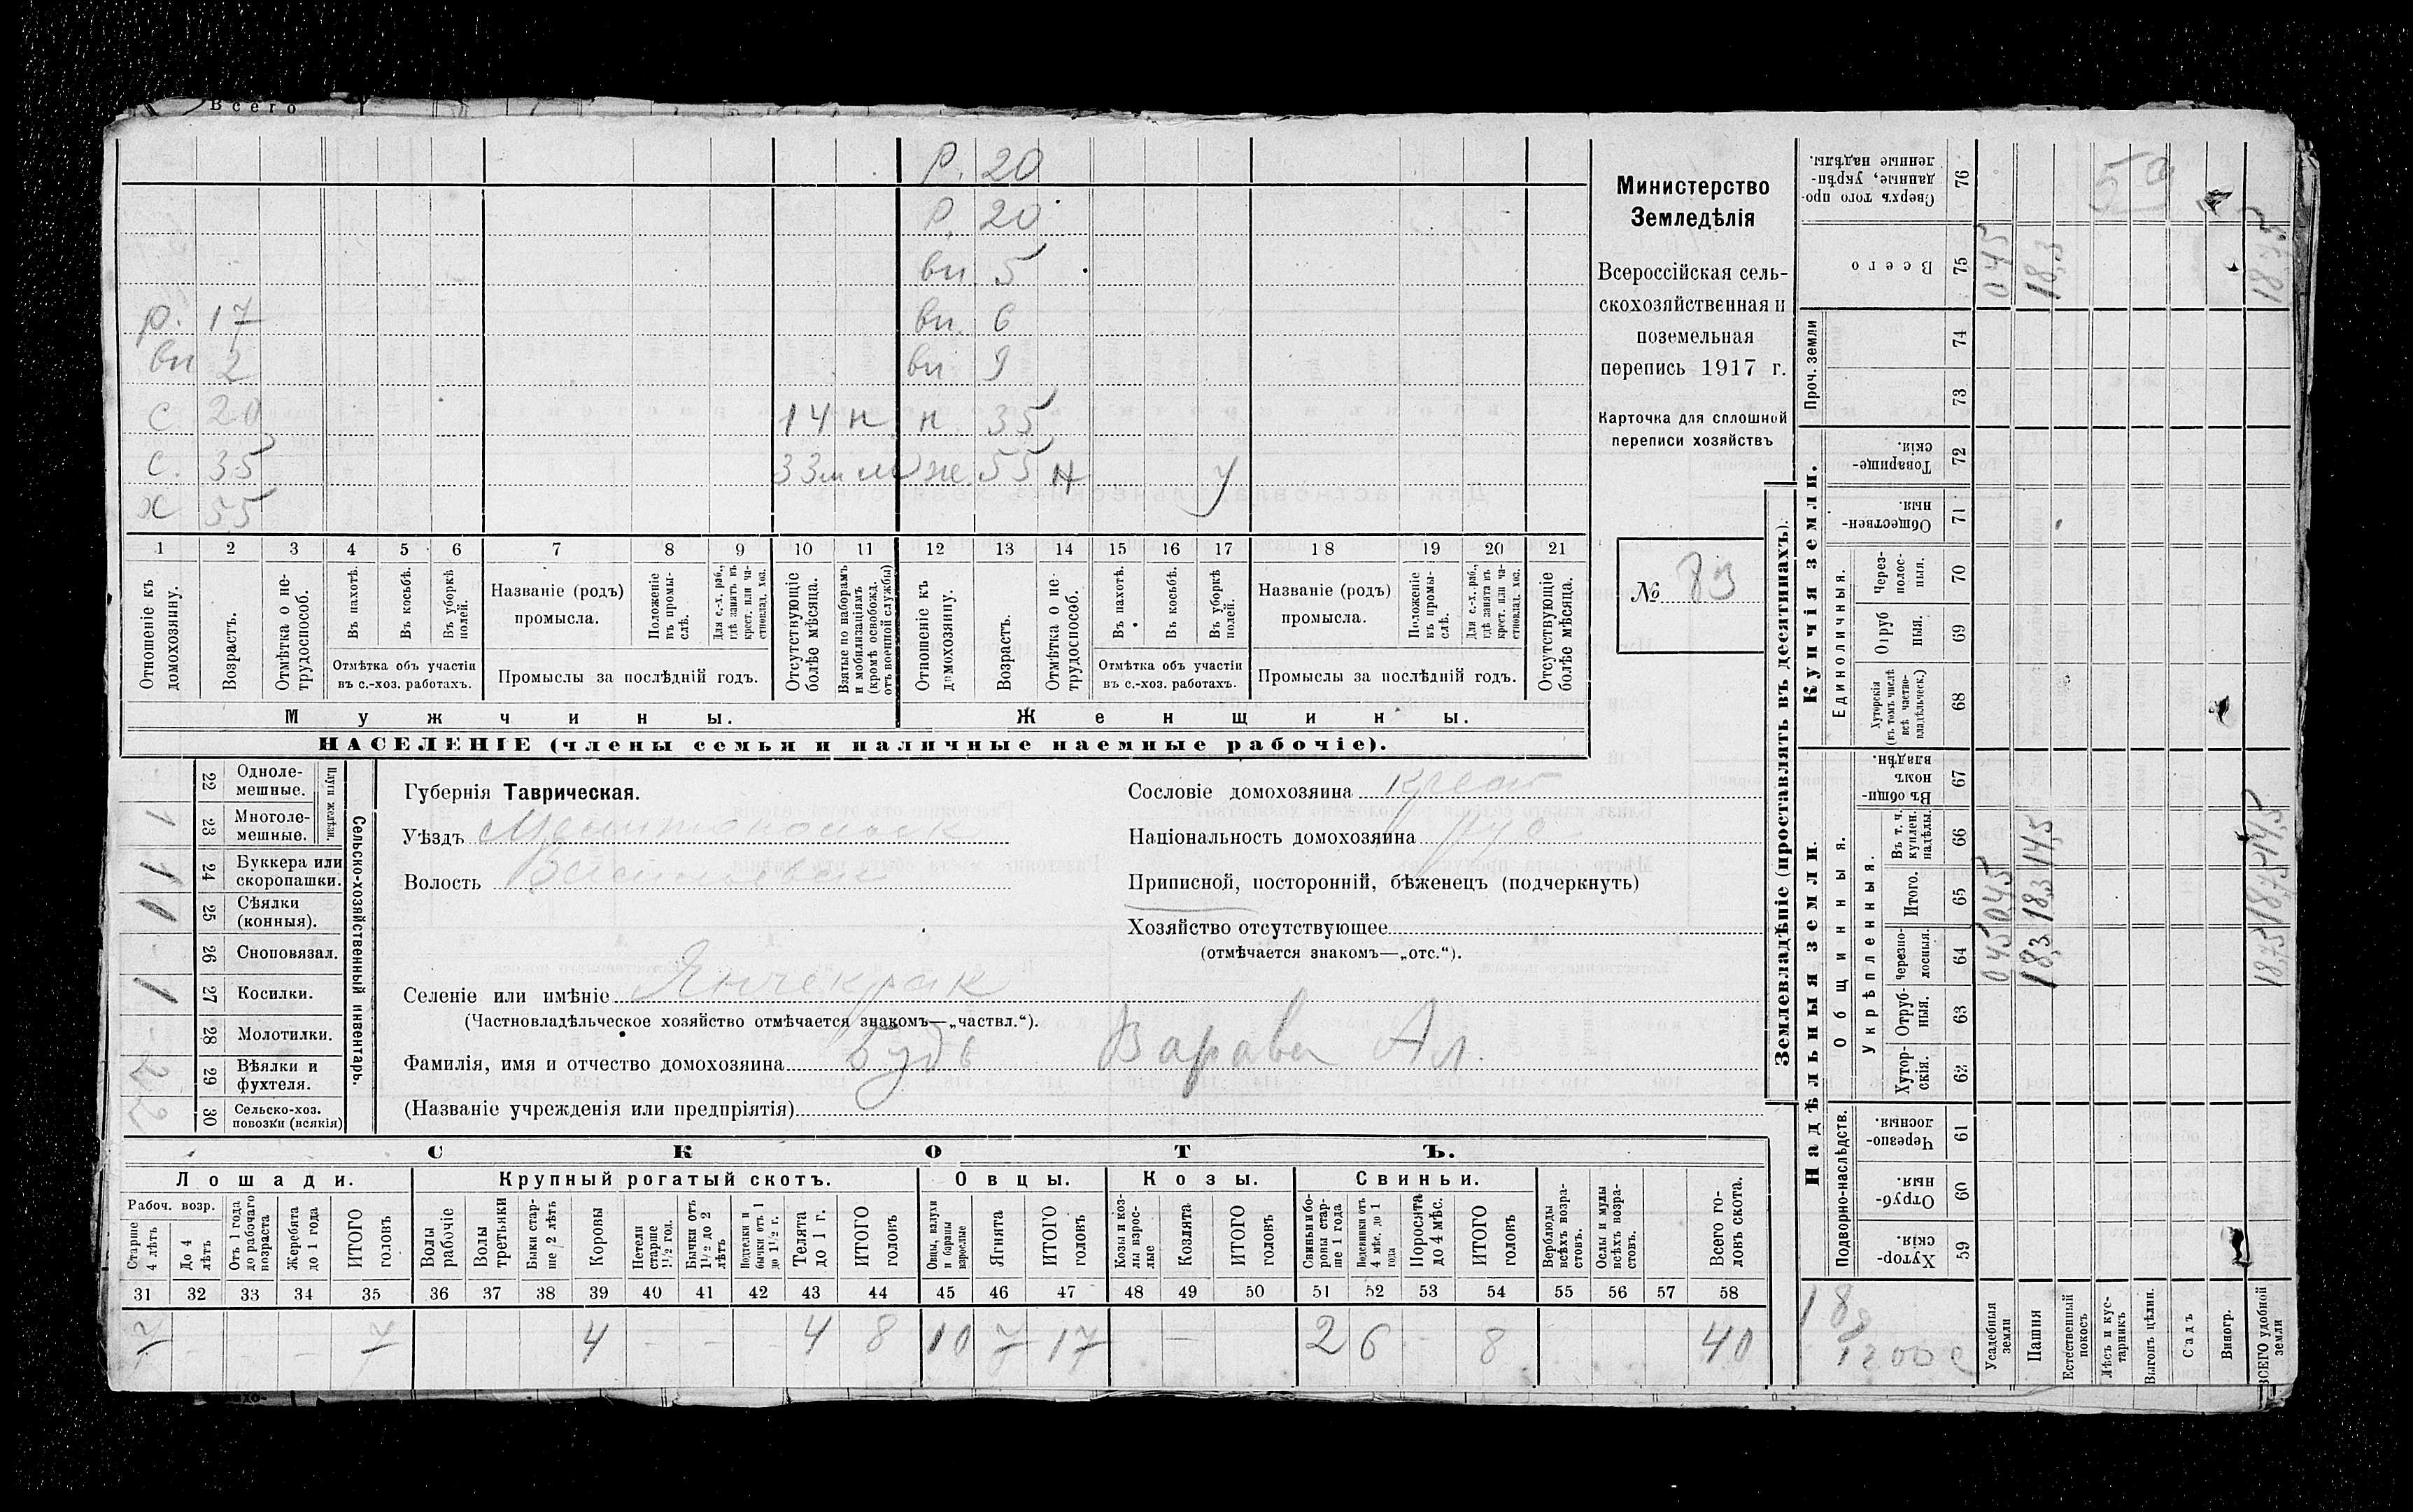 Всего
Р. 20
Р. 20
вн 5
р. 17 вн. 6
вн 2 вн 9
с 20 14 н н 35
с. 35 33 же 55 н у
х 55
1 2 3 4 5 6 7 8 9 10 11 12 13 14 15 16 17 18 19 20 21
Отношеніе къ домохозяину.
Возрастъ.
Отмѣтка о не-трудоспособ.
Въ пахотѣ.
Въ косьбѣ.
Въ уборкѣ полей.
Отмѣтка объ участіи въ с.-хоз. работахъ.
Названіе (родъ) промысла.
Положеніе въ промы-слѣ.
Для с.-х. раб., гдѣ занятъ въ крест. или ча-стновлад. хоз.
Промыслы за послѣдній годъ.
Отсутствующіе болѣе мѣсяца.
Взятые по наборамъ и мобилизаціямъ (кромѣ освобожд. отъ военной службы)
Отношеніе къ домохозяину.
Возрастъ.
Отмѣтка о не-трудоспособ.
Въ пахотѣ.
Въ косьбѣ.
Въ уборкѣ полей.
Отмѣтка объ участіи въ с.-хоз. работахъ.
Названіе (родъ) промысла.
Положеніе въ промы-слѣ.
Для с.-х. раб., гдѣ занята въ крест. или ча-стновлад. хоз.
Промыслы за послѣдній годъ.
Отсутствующіе болѣе мѣсяца.
Мужчины. Женщины.
НАСЕЛЕНІЕ (члены семьи и наличные наемные рабочіе).
Министерство
Земледѣлія
Всероссійская сель-
скохозяйственная и
поземельная
перепись 1917 г.
Карточка для сплошной
переписи хозяйствъ
№ 83
Сельско-хозяйственный инвентарь.
Плуги желѣзн.
22 Одноле-мешные.
1 23 Многоле-мешные.
1 24 Буккера или скоропашки.
1 25 Сѣялки (конныя).
- 26 Сноповязал.
1 27 Косилки.
- 28 Молотилки.
29 Вѣялки и фухтеля.
2 30 Сельско-хоз. повозки (всякія)
Губернія Таврическая.
Уѣздъ Мелитопольск
Волость Васильевск
Сословіе домохозяина крест
Національность домохозяина рус
Приписной, посторонній, бѣженецъ (подчеркнуть)
Хозяйство отсутствующее
(отмѣчается знакомъ—„отс.“).
Селеніе или имѣніе Янчекрак
(Частновладѣльческое хозяйство отмѣчается знакомъ—„частвл.“).
Фамилія, имя и отчество домохозяина Будь Варава Ал.
(Названіе учрежденія или предпріятія)
СКОТЪ.
Лошади. Крупный рогатый скотъ. Овцы. Козы. Свиньи.
Рабоч. возр.
Старше 4 лѣтъ
До 4 лѣтъ
Отъ 1 года до рабочаго возраста
Жеребята до 1 года
ИТОГО головъ
Волы рабочіе
Волы третьяки
Быки стар-ше 2 лѣтъ
Коровы
Нетели старше 1½ год.
Бычки отъ 1½ до 2 лѣтъ
Подтелки и бычки отъ 1 до 1½ г.
Телята до 1 г.
ИТОГО головъ
Овцы, валухи и бараны взрослые
Ягнята
ИТОГО головъ
Козы и коз-лы взрос-лые
Козлята
ИТОГО головъ
Свиньи и бо-ровы стар-ше 1 года
Подсвинки отъ 4 мѣс. до 1 года
Поросята до 4 мѣс.
ИТОГО головъ
Верблюды всѣхъ возра-стовъ.
Ослы и мулы всѣхъ возра-стовъ.
Всего го-ловъ скота.
31 32 33 34 35 36 37 38 39 40 41 42 43 44 45 46 47 48 49 50 51 52 53 54 55 56 57 58
7 - - - 7 4 - - 4 8 10 7 17 - 2 6 - 8 40
Землевладѣніе (проставлять въ десятинахъ).
Сверхъ того про-даные, укрѣп-ленные надѣлы. 76 59
Всего 75 045 18,3 18,75
Проч. земли 74
73
Купчія земли.
Товарище-скія. 72
Обществен-ныя. 71
Единоличныя.
Через-полос-ныя. 70
Отруб ныя. 69
Хуторскія (въ томъ числѣ всѣ частно-владѣльческ.) 68
Надѣльныя земли.
Общинныя.
Въ общи-номъ владѣн. 67
Укрѣпленныя.
Въ т. ч. куплен. надѣлы. 66 14,5 14,5
Итого. 65 045 18,3 18,75
Черезпо-лосныя. 64 045 18,3 18,75
Отруб-ныя. 63
Хутор-скія. 62
Подворно-наслѣдств.
Черезпо-лосныя 61
Отруб-ныя. 60
Хутор-скія. 59
Усадебныя земли
Пашня
Естественный покосъ
Лѣсъ и кус-тарникъ
Выгонъ цѣлин.
Садъ
Виногр.
ВСЕГО удобной земли